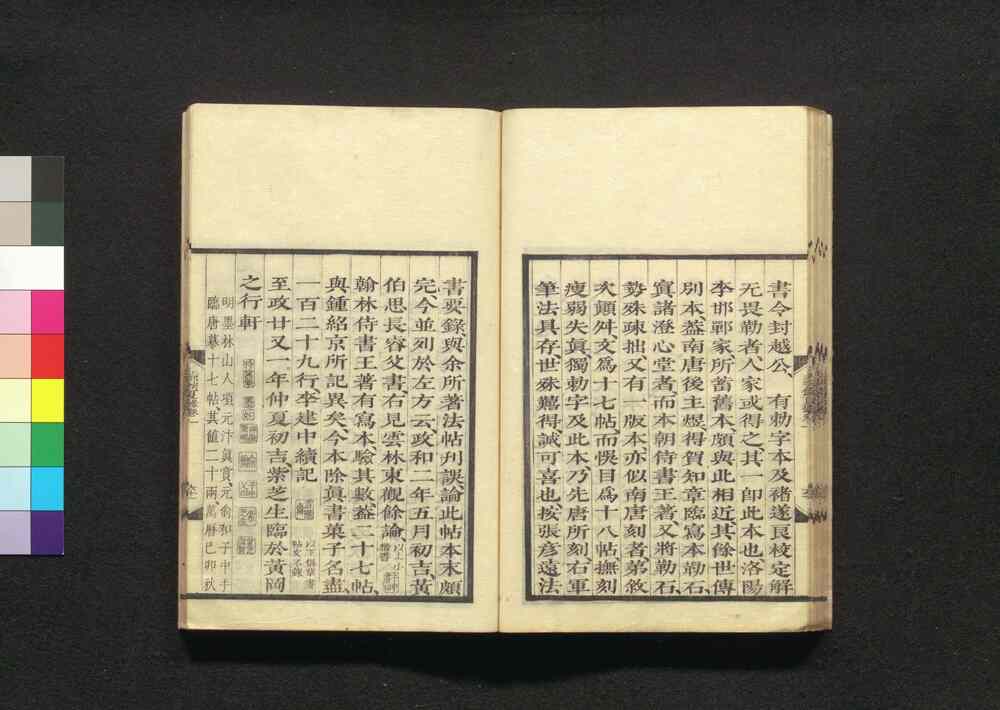 書令封越公、有勅字本及褚遂良校定解
无畏勒者、人家或得之、其一卽此本也洛陽
李邯鄲家所畜舊本、頗與此相近、其餘世傳
別本、葢南唐後主煜、得賀知章臨寫本勒石、
寘諸澄心堂者、而本朝侍書王著又將勒石、
勢殊疎拙、又有一版本亦似南唐刻者、第敘
次顛舛文爲十七帖而悞目爲十八帖撫刻
瘦弱失眞、獨勅字及此本乃先唐所刻右軍
筆法具存、世殊難得、誠可喜也按張彦遠法
書要錄、與余所著法帖刋誤、論此帖本末頗
完、今並列於左方云、政和二年五月初吉、黃
伯思長睿父書、右見雲林東觀餘論、
翰林侍書王著有寫本、驗其數葢二十七帖、
與鍾紹京所記異矣、今本除眞書菓子名盡
一百二十九行、李建中續記
至政廿又一年仲夏初吉、紫芝生臨於黃岡
之行軒
明墨林山人項元汴眞賞、元俞和子中手
臨唐摹十七帖、其値二十兩萬曆己卯秋